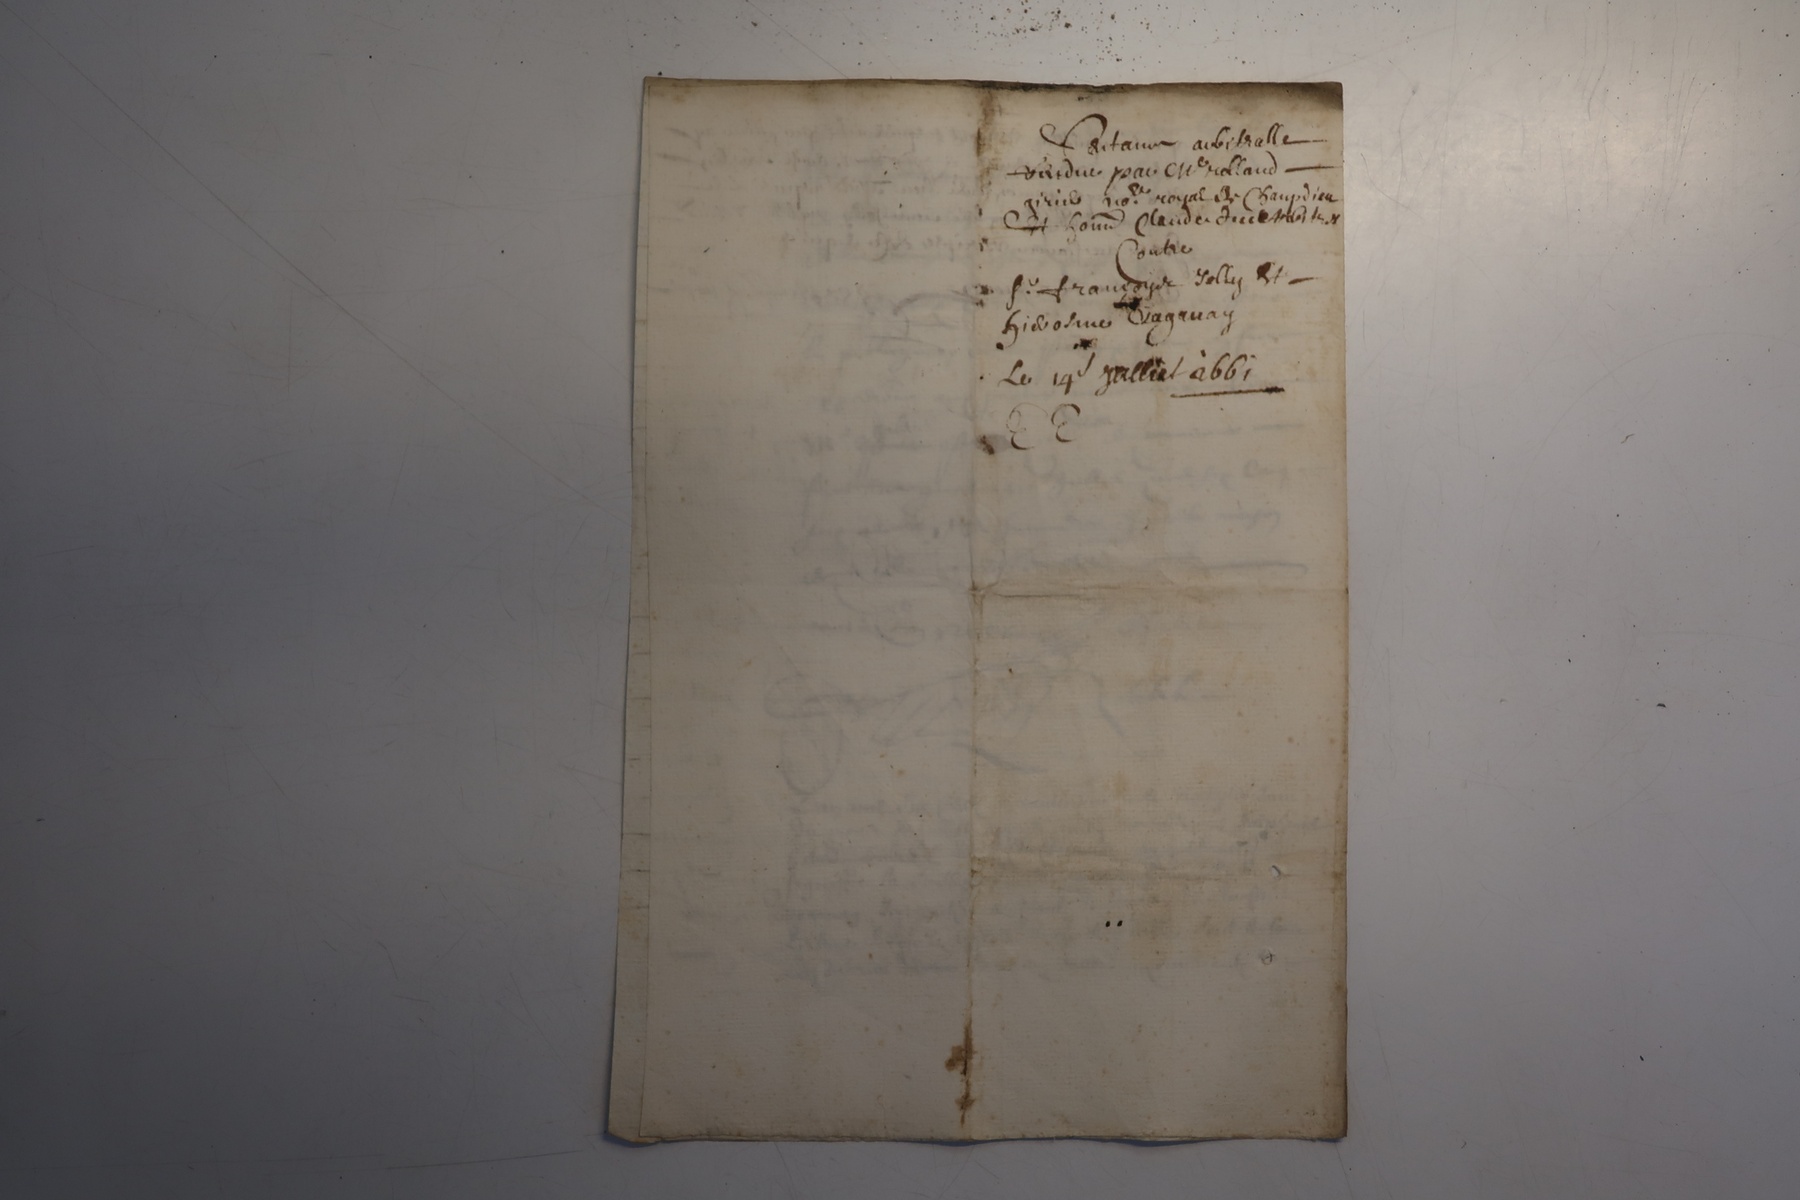 Sentance arbitralle
rendue par Me rolland
girid no.re royal de Champdieu
Et honn. Claude
Contre
sr. françoys Jolly Et
hierosme Vaganay
Le 14e Juillet 1661